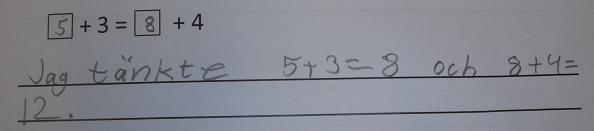 5 + 3 = 8 + 4
Jag tänkte 5+3=8 och 8+4=
12.